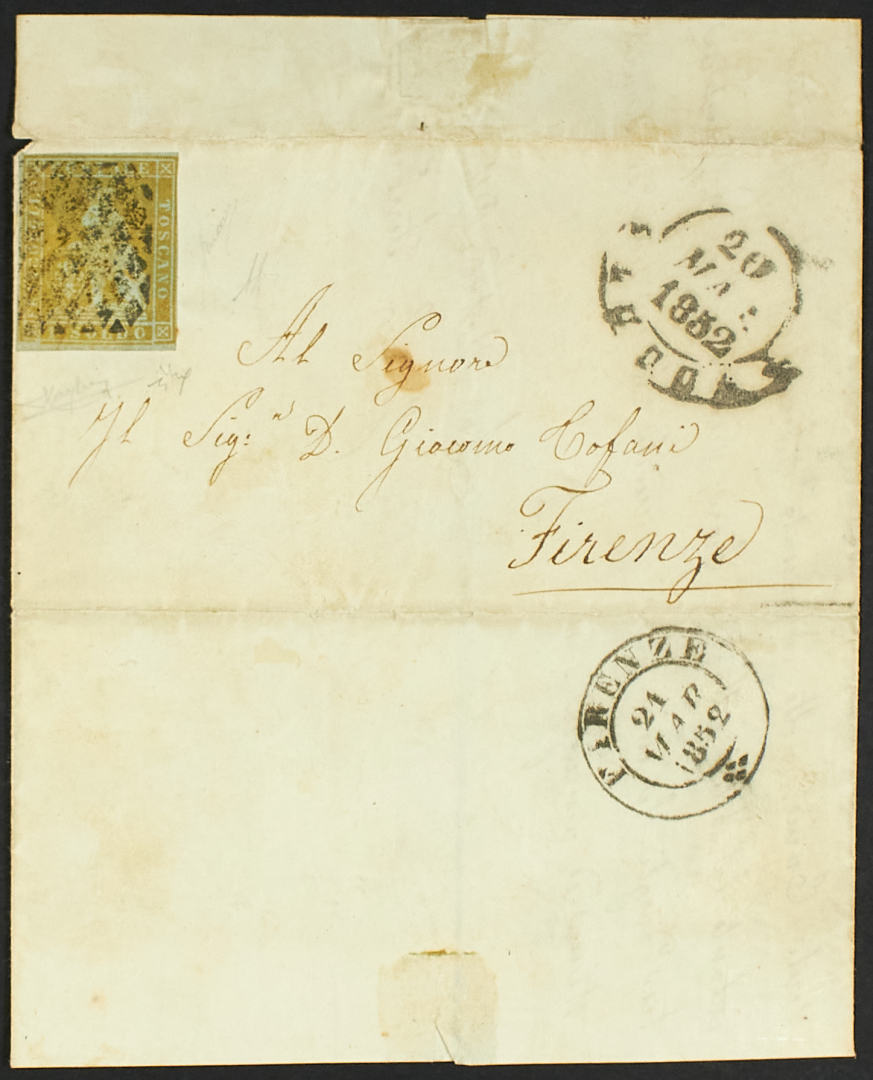 TOSCANO
SOLDO
20
MAR
1852
Al Signore
Il Sig:re D. Giacomo Cofani
Firenze
FIRENZE
21
MAR
1852